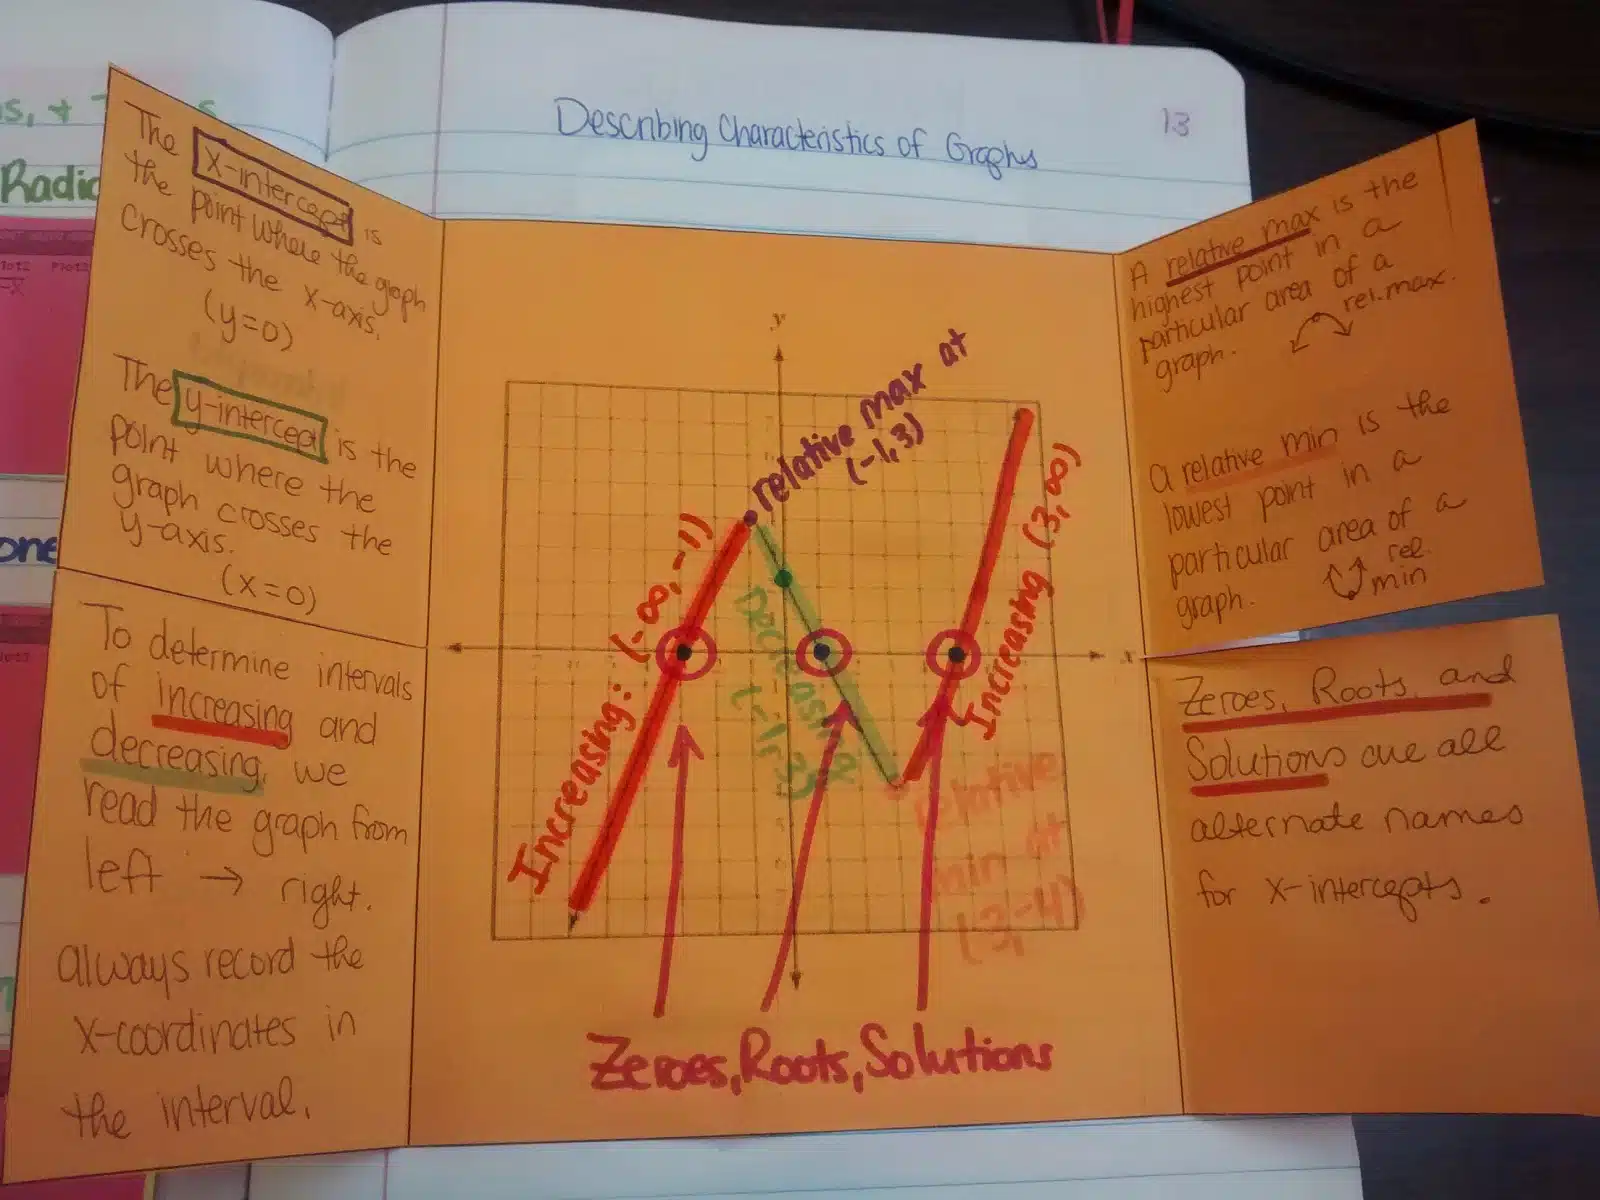 Describing Characteristics of Graphs
13
The x-intercept is
the point where the graph
crosses the x-axis.
(y=0)
The y-intercept is the
point where the
graph crosses the
y-axis.
(x=0)
To determine intervals
of increasing and
decreasing, we
read the graph from
left → right.
always record the
x-coordinates in
the interval.
y
x
relative max at
(-1,3)
Increasing: (-∞,-1)
Decreasing
(-1,3)
Increasing (3,∞)
relative
min at
(3,-4)
Zeroes, Roots, Solutions
A relative max is the
highest point in a
particular area of a
graph.
rel. max.
A relative min is the
lowest point in a
particular area of a
graph.
rel.
min
Zeroes, Roots, and
Solutions are all
alternate names
for x-intercepts.
Radic
one
Plot2 Plot3